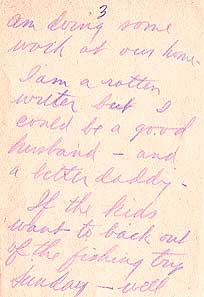 3
am doing some
work at our home.
I am a rotten
writer but I
could be a good
husband - and
a better daddy.
If the kids
want to back out
of the fishing trip
Sunday - well